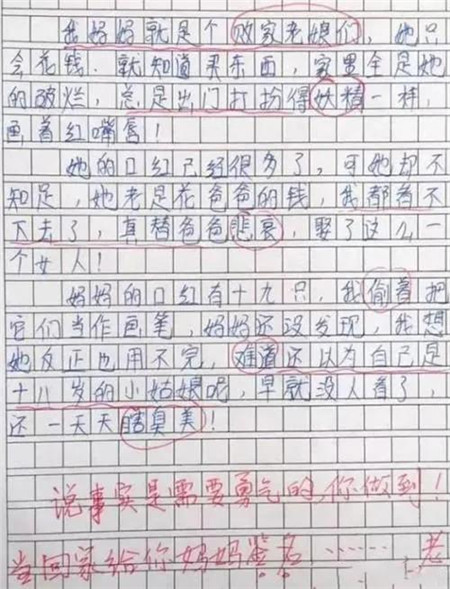 我妈妈就是个败家老娘们，她只
会花钱．就知道买东西，家里全是她
的破烂，总是出门打扮得妖精一样，
画着红嘴唇！
她的口红已经很多了，可她却不
知足，她老是花爸爸的钱，我都看不
下去了，真替爸爸悲哀，娶了这么一
个女人！
妈妈的口红有十九只，我偷着把
它们当作画笔，妈妈还没发现，我想
她反正也用不完，难道还以为自己是
十八岁的小姑娘呢，早就没人看了，
还一天天瞎臭美！
说事实是需要勇气的，你做到！
当回家给你妈妈鉴名……老